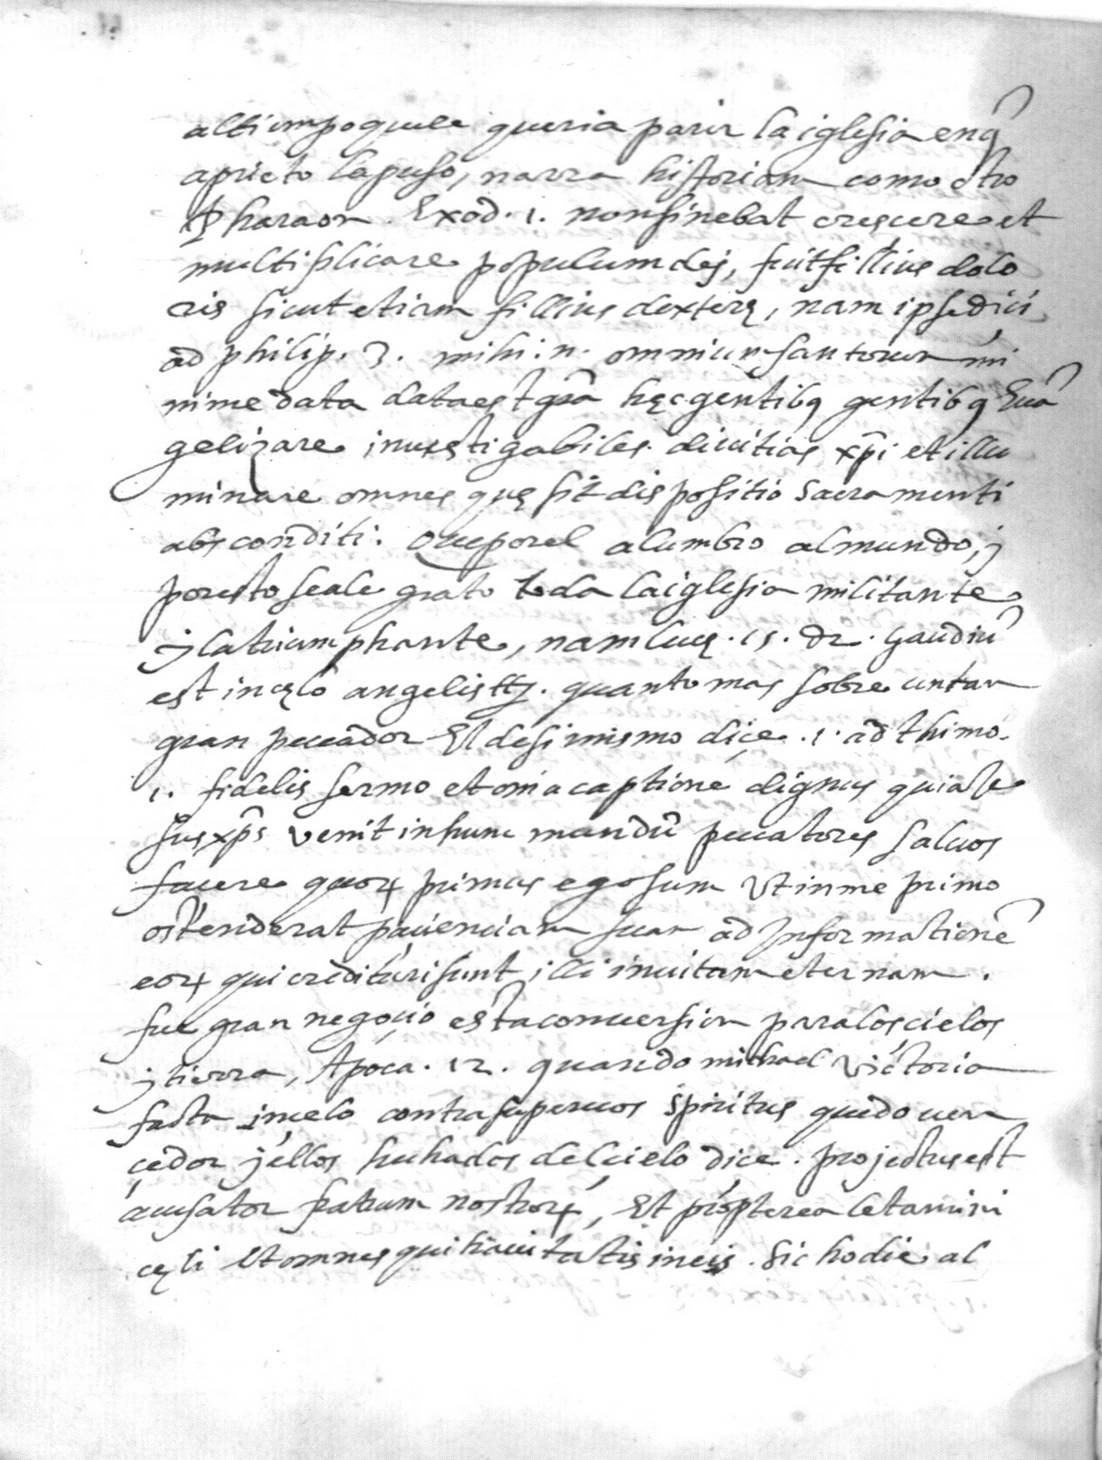 al tiempo quele queria parir la iglesia enq̃
aprieto la puso, narra historiam como otro
Pharaon. Exod. 1. non sinebat crescere et
multiplicare populum dej, fuit fillius dolo
ris sicut etiam fillius dexterę, nam ipse dici
ad philip. 3. mihi .n. omnium santorum mi
nime data data est grã hęc gentibq gentibq Eua
gelizare inuestigabiles diuitias xp̃i et illu
minare omnes quę sit dispositio sacramenti
absconditi: que por el alumbro al mundo, j
por esto seale grato toda la iglesia militante
j la triumphante, nam lucę. 15. dr. Gaudiũ
est in cęlo angelis ttj. quanto mas sobre un tan
gran peccador El desi mismo diçe. 1. ad thimo.
1. fidelis sermo et omi acaptione dignus quia Je
sus xp̃s venit in hunc mundũ peccatores saluos
facere quoꝝ primus ego sum Vt in me primo
ostenderat pacienciam suam ad Informationẽ
eoꝝ qui credituri sunt illi in uitam eternam.
fue gran negoçio esta conuersion para los cielos
j tierra, Apoca. 12. quando michael Victoria
facta in celo contra superuos spiritus quedo uen
cedor j ellos huhados del cielo dice. projectus est
acusator fratrum nostroꝝ, Et propterea letamini
cęli Et omnes qui hauitatis in eis. Sic hodie al